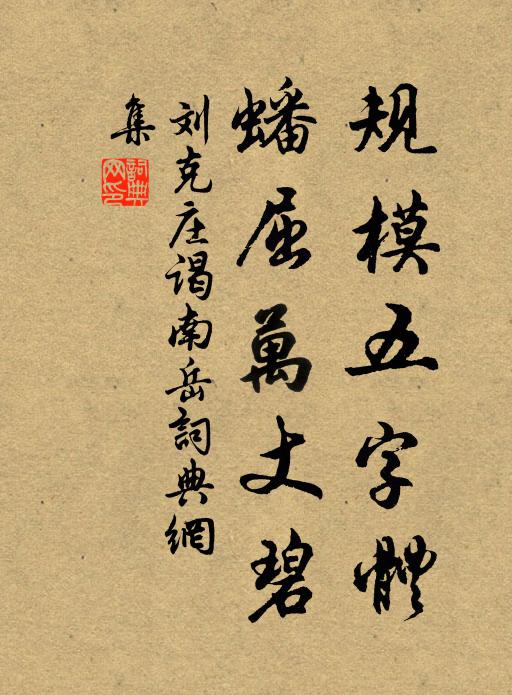 規模五字體
蟠屈萬丈碧
刘克庄谒南岳詞典網
集
詞典网印